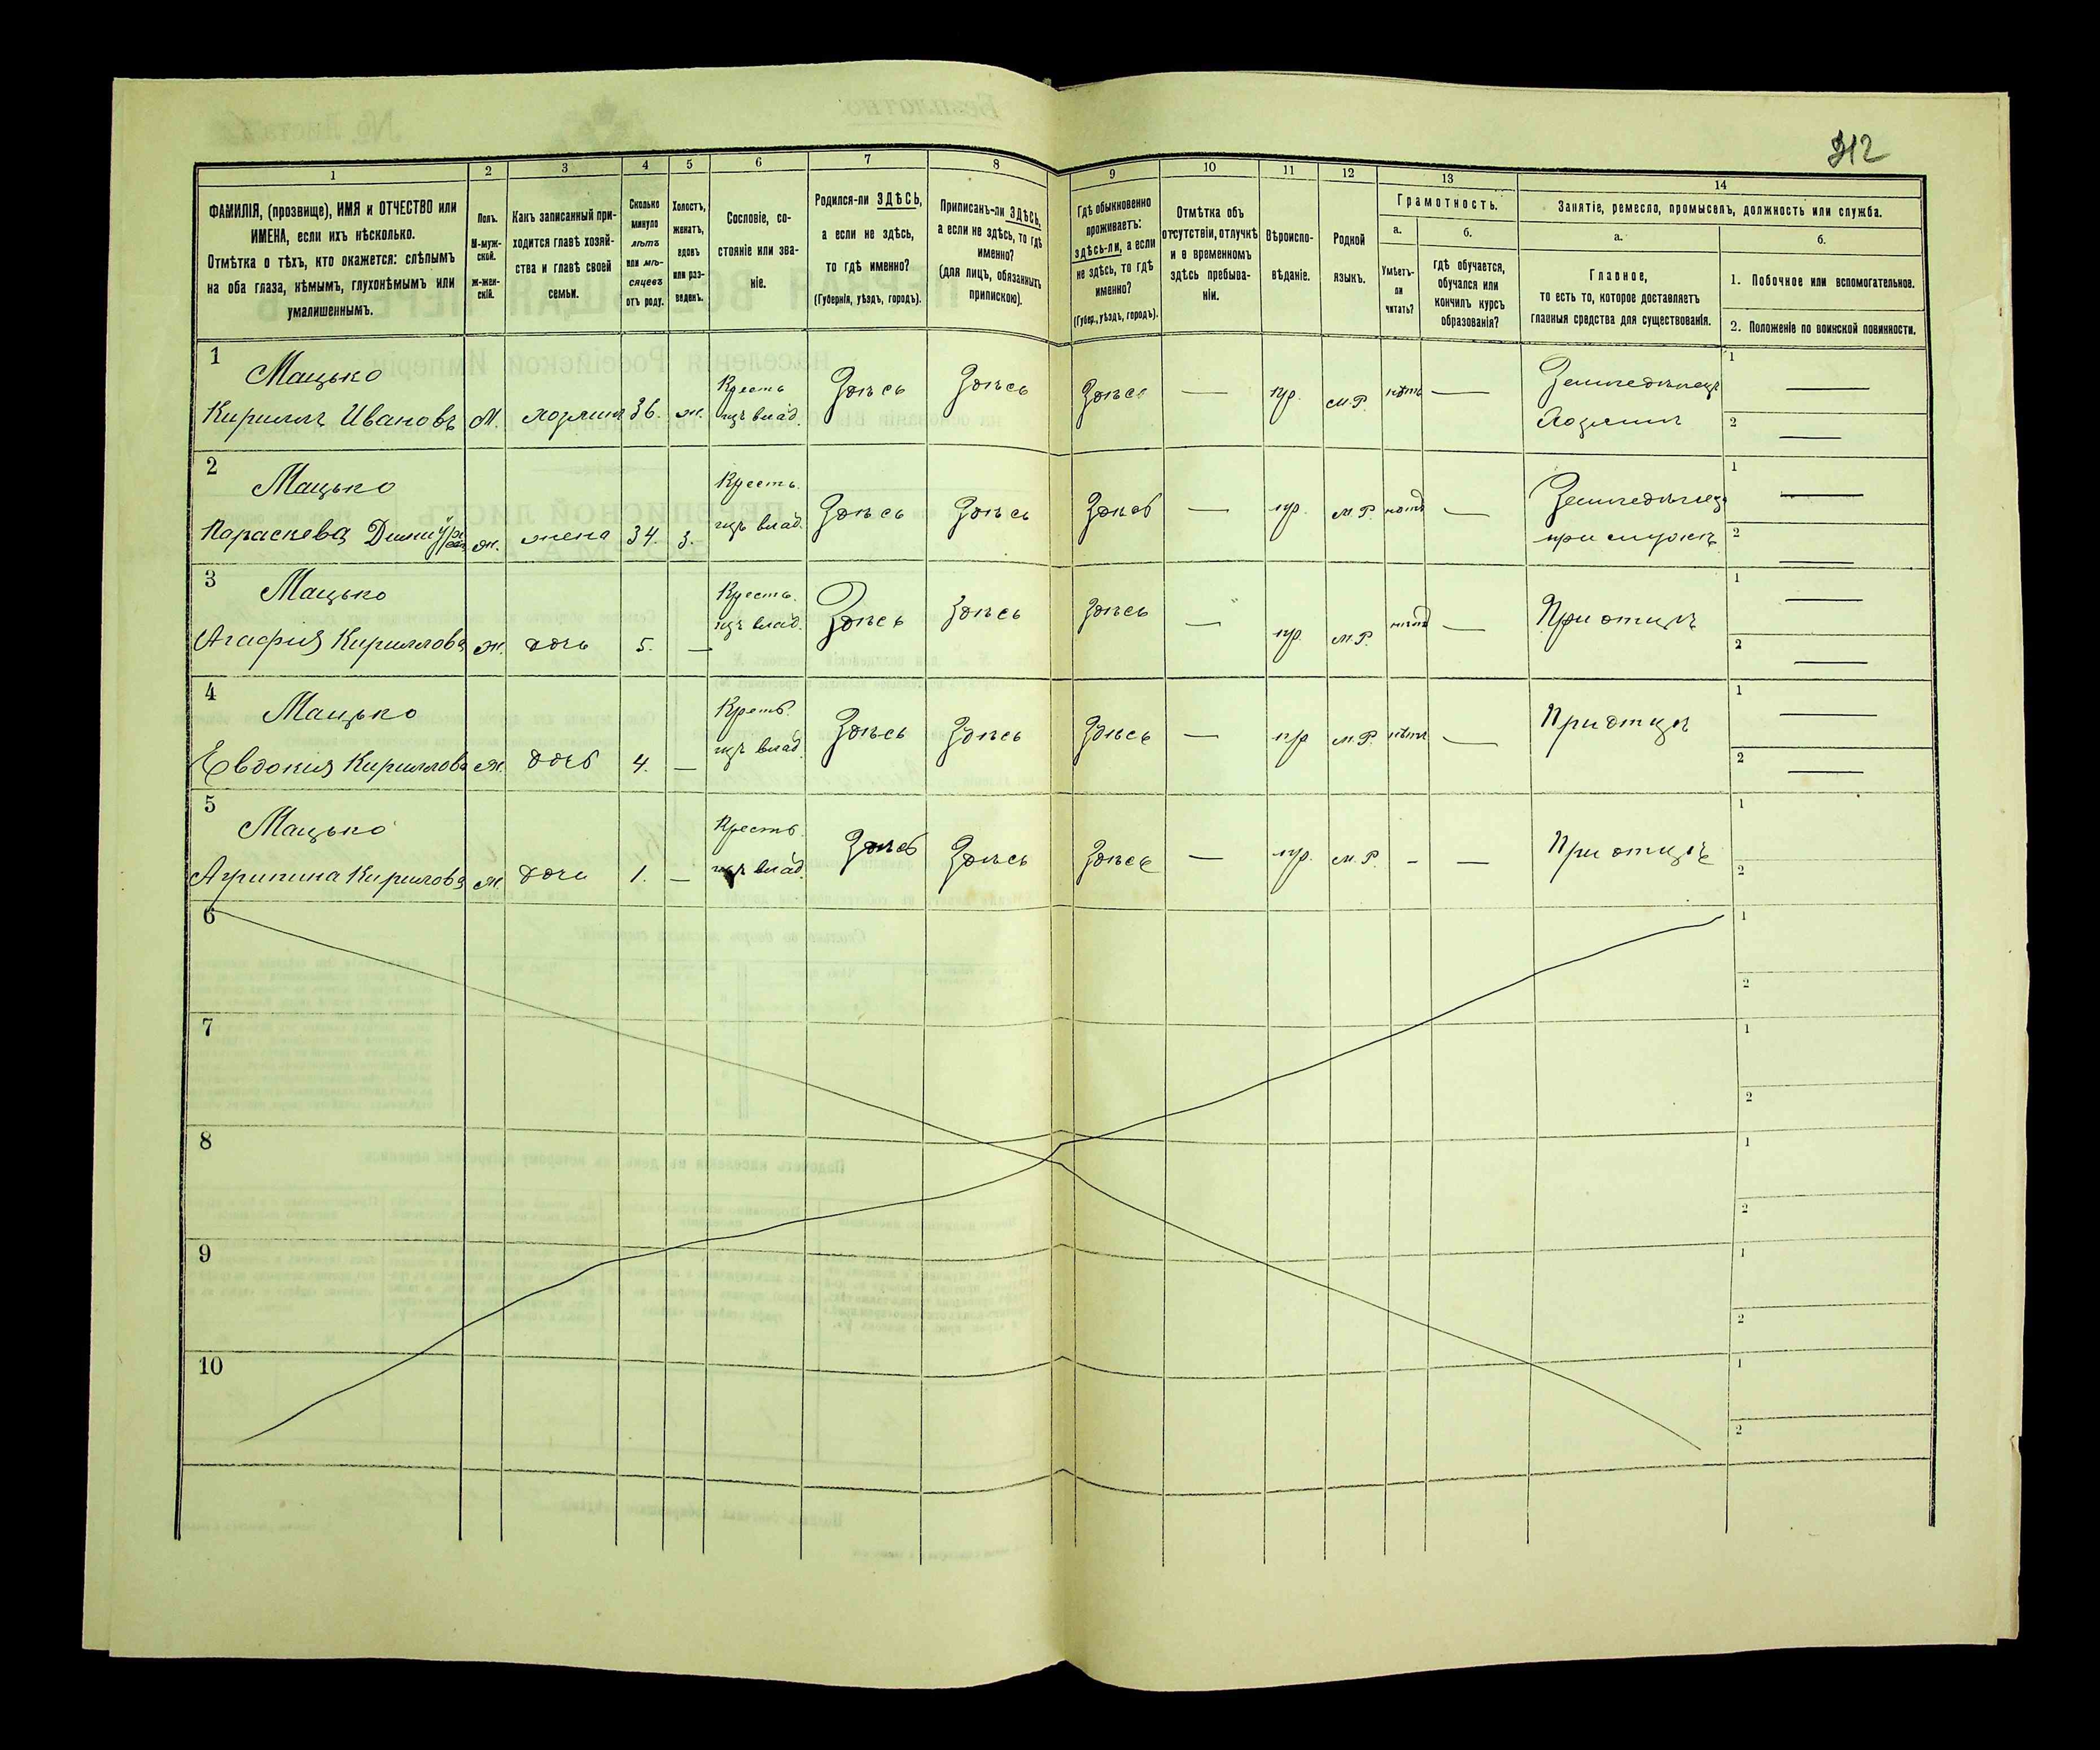 312
1 2 3 4 5 6 7 8 9 10 11 12 13 14
ФАМИЛІЯ, (прозвище), ИМЯ и ОТЧЕСТВО или
ИМЕНА, если ихъ нѣсколько.
Отмѣтка о тѣхъ, кто окажется: слѣпымъ
на оба глаза, нѣмымъ, глухонѣмымъ или
умалишеннымъ.
Полъ.
М-муж-
ской.
Ж-жен-
скій.
Какъ записанный при-
ходится главѣ хозяй-
ства и главѣ своей
семьи.
Сколько
минуло
лѣтъ
или мѣ-
сяцевъ
отъ роду.
Холостъ,
женатъ,
вдовъ
или раз-
веденъ.
Сословіе, со-
стояніе или зва-
ніе.
Родился-ли ЗДѢСЬ,
а если не здѣсь,
то гдѣ именно?
(Губернія, уѣздъ, городъ).
Приписанъ-ли ЗДѢСЬ,
а если не здѣсь, то гдѣ
именно?
(для лицъ, обязанныхъ
припискою).
Гдѣ обыкновенно
проживаетъ:
здѣсь-ли, а если
не здѣсь, то гдѣ
именно?
(Губер., уѣздъ, городъ).
Отмѣтка объ
отсутствіи, отлучкѣ
и о временномъ
здѣсь пребыва-
ніи.
Вѣроиспо-
вѣданіе.
Родной
языкъ.
Грамотность.
а.
Умѣетъ-
ли
читать?
б.
гдѣ обучается,
обучался или
кончилъ курсъ
образованія?
Занятіе, ремесло, промыселъ, должность или служба.
а.
Главное,
то есть то, которое доставляетъ
главныя средства для существованія.
б.
1. Побочное или вспомогательное.
2. Положеніе по воинской повинности.
1 Мацько Кресть Здѣсь Здѣсь Здѣсь — пр. м.р. нѣтъ — Земледѣлецъ 1 —
Кириллъ Ивановъ М. хозяинъ 36. ж. изъ влад. Хозяинъ 2 —
2 Мацько Кресть. Здѣсь Здѣсь Здѣсь — пр. м.р. нѣтъ — Земледѣлец 1 —
Параскева ж. жена 34. з. изъ влад. 2 —
3 Мацько Кресть. Здѣсь Здѣсь Здѣсь — пр. м.р. нѣтъ — При отцѣ 1 —
Агафия Кириллова ж. дочь 5. — изъ влад. 2 —
4 Мацько Кресть. Здѣсь Здѣсь Здѣсь — пр м.р. нѣтъ — При отцѣ 1 —
Евдокия Кириллова ж. дочь 4. — изъ влад. 2 —
5 Мацько Кресть. Здѣсь Здѣсь Здѣсь — пр. м.р. - — При отцѣ 1
Агрипина Кирилова ж. дочь 1. — изъ влад. 2
6 1
2
7 1
2
8 1
2
9 1
2
10 1
2